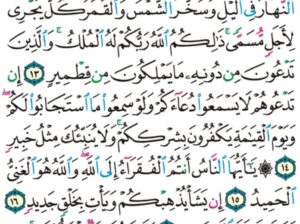 ٱلنَّهَارَ فِى ٱلَّيْلِ وَسَخَّرَ ٱلشَّمْسَ وَٱلْقَمَرَ كُلٌّ يَجْرِى
لِأَجَلٍ مُّسَمًّى ذَٰلِكُمُ ٱللَّهُ رَبُّكُمْ لَهُ ٱلْمُلْكُ وَٱلَّذِينَ
تَدْعُونَ مِن دُونِهِۦ مَا يَمْلِكُونَ مِن قِطْمِيرٍ ١٣ إِن
تَدْعُوهُمْ لَا يَسْمَعُوا۟ دُعَآءَكُمْ وَلَوْ سَمِعُوا۟ مَا ٱسْتَجَابُوا۟ لَكُمْ
وَيَوْمَ ٱلْقِيَٰمَةِ يَكْفُرُونَ بِشِرْكِكُمْ وَلَا يُنَبِّئُكَ مِثْلُ خَبِيرٍ
١٤ ۞ يَٰٓأَيُّهَا ٱلنَّاسُ أَنتُمُ ٱلْفُقَرَآءُ إِلَى ٱللَّهِ وَٱللَّهُ هُوَ ٱلْغَنِىُّ
ٱلْحَمِيدُ ١٥ إِن يَشَأْ يُذْهِبْكُمْ وَيَأْتِ بِخَلْقٍ جَدِيدٍ ١٦